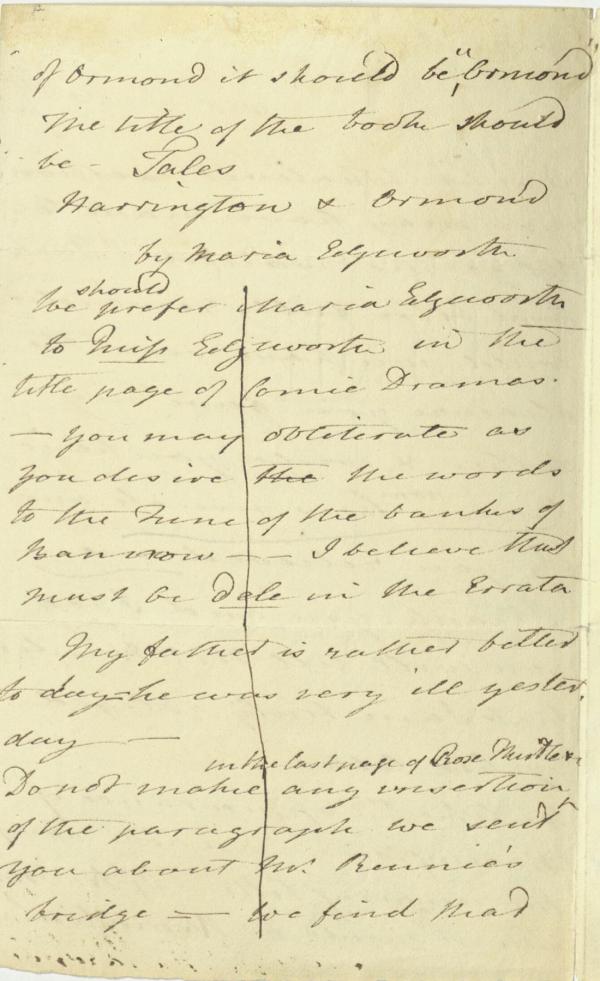 of Ormond it should be, "Ormond"
The title of the book should
be - Tales
Harrington & Ormond
by Maria Edgworth
should
We prefer Maria Edgworth
to Miss Edgworth in the
title page of Comic Dramas.
— You may obliterate as
you desire the the words
to the Tune of the banks of
Banrow — — I believe that
must be dele in the Errata
My father is rather better
to day - he was very ill yester.
day —
in the last page of Rose Thistle &c
Do not make any insertion
of the paragraph we send
you about Mr. Rennie's
bridge = — We find that